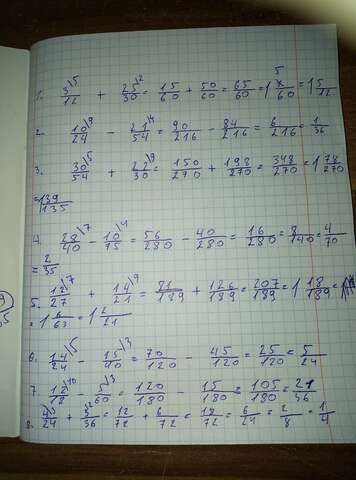 1. 3\5/12 + 25\2/30 = 15/60 + 50/60 = 65/60 = 1 5/60 = 1 5/12
2. 10\9/24 - 21\4/54 = 90/216 - 84/216 = 6/216 = 1/36
3. 30\5/54 + 22\9/30 = 150/270 + 198/270 = 348/270 = 1 78/270
= 1 39/135
4. 28\7/40 - 10\4/75 = 56/280 - 40/280 = 16/280 = 8/140 = 4/70
= 2/35
5. 12\7/27 + 14\9/21 = 81/189 + 126/189 = 207/189 = 1 18/189 =
= 1 6/63 = 1 2/21
6. 14\5/24 - 15\3/40 = 70/120 - 45/120 = 25/120 = 5/24
7. 12\10/18 - 5\3/60 = 120/180 - 15/180 = 105/180 = 21/36
8. 4\3/24 + 3\2/36 = 12/72 + 6/72 = 18/72 = 6/24 = 2/8 = 1/4